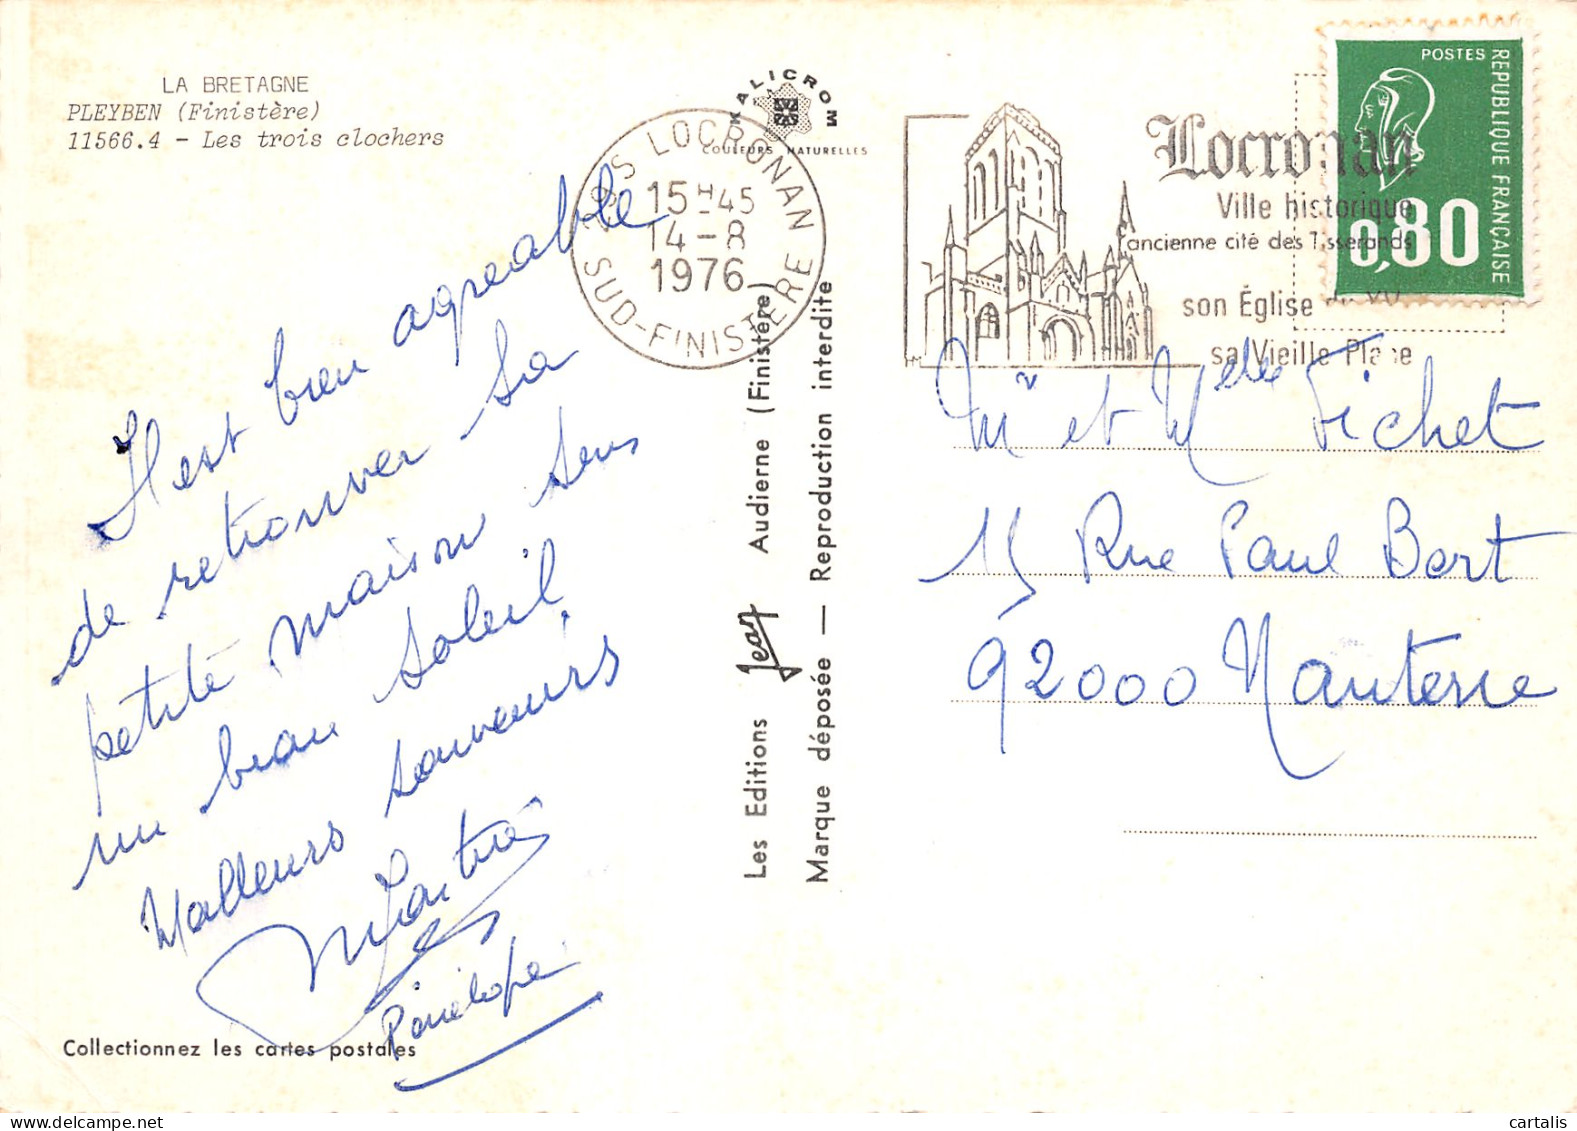 LA BRETAGNE
PLEYBEN (Finistère)
11566.4 - Les trois clochers
KALICROM
COULEURS NATURELLES
LOCRONAN
15H45
14-8
1976
SUD-FINISTERE
Locronan
Ville historique
ancienne cité des Tisserands
son Église du XV
sa Vieille Place
POSTES
REPUBLIQUE FRANÇAISE
0,80
Il est bien agréable
de retrouver sa
petite maison sous
un beau soleil
Meilleurs souvenirs
Pénélope
Mr et Melle Fichet
15 Rue Paul Bert
92000 Nanterre
Les Editions Jean Audierne (Finistère)
Marque déposée — Reproduction interdite
Collectionnez les cartes postales
cartalis